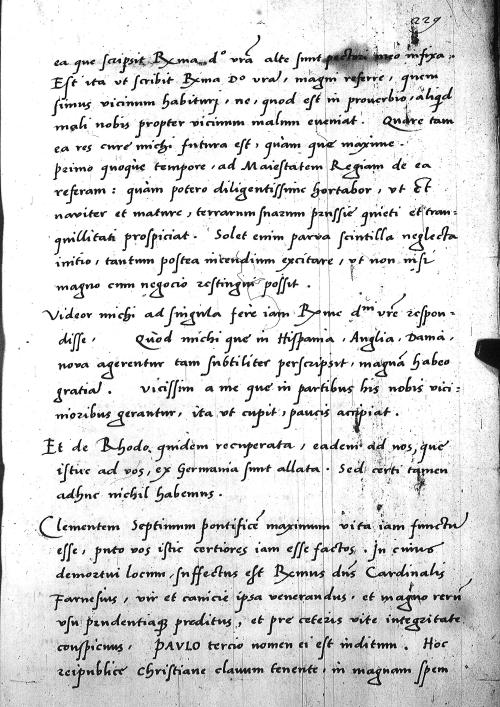 229
ea que scripsit Rx̃ma dº vrã alte sunt pectori meo infixa.
Est ita ut scribit Rx̃ma Dº vrã, magni referre, quem
simus vicinum habituri, ne, quod est in proverbio, aliqd
mali nobis propter vicinum malum eveniat. Quare tam
ea res cure michi futura est, quàm que maxime.
Primo quoque tempore, ad Maiestatem Regiam de ea
referam: quàm potero diligentissime hortabor, ut Et
naviter et mature, terrarum suarum prussie quieti et tran=
quillitati prospiciat. Solet enim parva scintilla neglecta
initio, tantum postea incendium excitare, ut non nisi
magno cum negocio restingui possit.
Videor michi ad singula fere iam Rx̃me dm̃ vrẽ respon=
disse, Quod michi que in Hispania, Anglia, Dania,
nova agerentur tam subtiliter perscripsit, magnã habeo
gratiã. Vicissim a me que in partibus his nobis vici=
nioribus gerantur, ita ut cupit, paucis accipiat.
Et de Rhodo quidem recuperata, eadem ad nos, que
istuc ad vos, ex Germania sunt allata. Sed certi tamen
adhuc nichil habemus.
Clementem Septimum pontificẽ maximum vita iam functũ
esse, puto vos istic certiores iam esse factos. In cuius
demortui locum, suffectus est Rx̃mus dñs Cardinalis
Farnesius, vir et canicie ipsa venerandus, et magno rerũ
usu prudentiaqz preditus, et pre ceteris vite integritate
conspicuus, PAVLO tercio nomen ei est inditum. Hoc
reipublice Christiane clavum tenente, in magnam spem